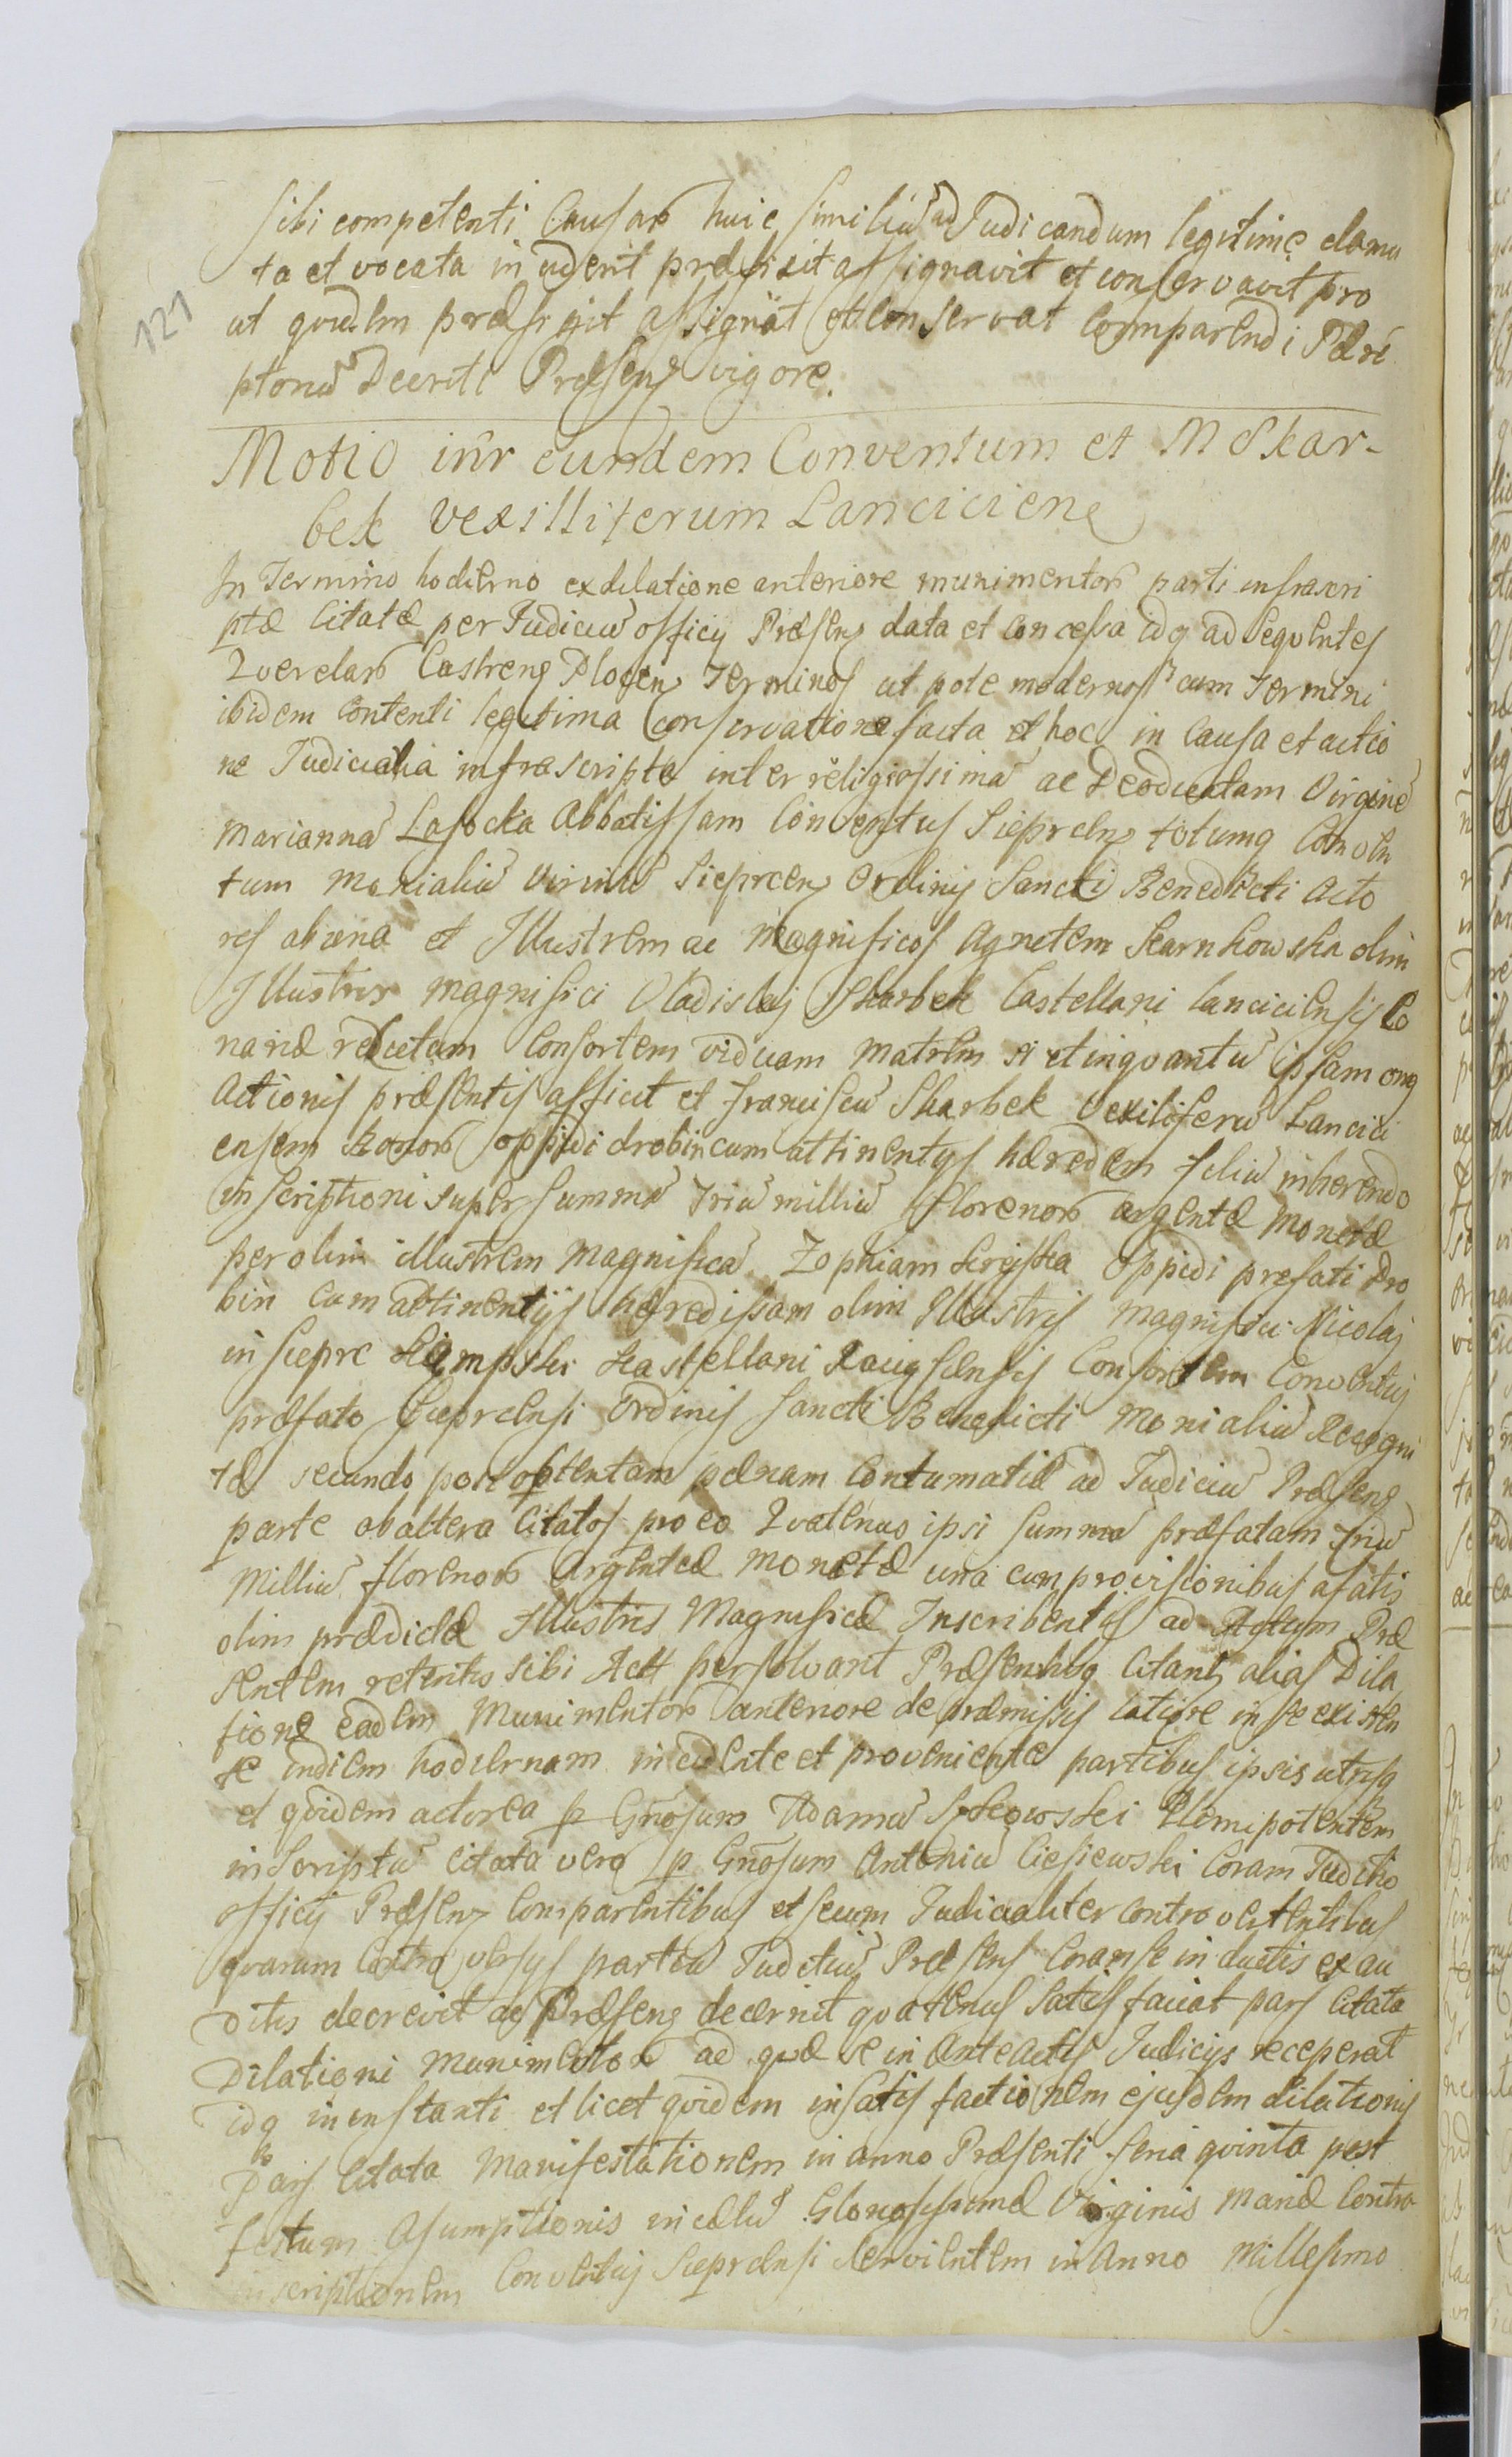 sibi competenti Causar huic similiũ ad Judicandum legitime clama
ta et vocata inciderit præfixit assignavit et conservavit pro
121
ut quidem præfigit assignat et conservat Comparendi Peré
ptoriũ Decreti Præsens vigore.
Motio inr̃ eundem Conventum et M Skar-
bek vexilliferum Lanciciens
In Termino hodierno ex dilatione anteriore munimentor parti infrascri
ptæ Citatæ per Judiciũ officij Præsens data et concessa idq ad sequentes
Querelar Castrens Plocens Terminos ut pote modernos cum Termini
ibidem Contenti legitima Conservatione facta et hoc in Causa et actio
ne Judicialia infrascripta inter religiosissimã ac Deodicatam Virginẽ
Mariannã Lasocka Abbatissam Conventus Sieprcens totumq Conven
tum Monialiũ Virinũ Sieprcens Ordinis Sancti Benedicti acto
res ab una et Illustrem ac Magnificos Agnetem Karnkowska olim
Illustris Magnifici Vladislaj Skarbek Castellani Lanciciensis Co
nariæ relictam Consortem viduam Matrem si et inquantũ ipsam onq
Actionis præsentis afficit et Franciscũ Skarbek Vexiliferũ Lancici
ensem bonor oppidi drobin cum attinentijs hæredem filiũ inherendo
inscriptioni super summã Triũ milliũ florenor argentæ Monetæ
per olim illustrem Magnificã Zophiam Kryska Oppidi prefati Dro
bin Cum attinentijs hæredissam olim Illustris Magnifici Nicolaj
in Sieprc Kastellani Raciąsensis Consortem Conventuj
præfato Sieprcensi Ordinis Sancti Benedicti Monialiũ Recogni
tæ secundo post optentam pænam Contumatiæ ad Judiciũ Præsens
parte ab altera Citatos pro eo Quatenus ipsi summã præfatam Triũ
Milliũ florenor Argenteæ Monetæ una cum provisionibus afatis
olim prædictæ Illustris Magnificæ Inscribentis ad Actum Præ
sentem retentis sibi Act persolvant Præsentibq Citants alias Dila
tione eadem Munimentor anteriore de præmissis latiore in se existen
te indiem hodiernam incidente et proveniente partibus ipsis utrisq
et quidem actorea p Gnõsum Adamũ Plenipotentem
inscriptũ citata vero p Gnõsum Antoniũ Ciesiewski Coram Judicio
officij Præsens Comparentibus et secum Judicialiter controvertentibus
quarum Controversijs partiũ Judiciũ Præsens Coram se inductis exau
ditis decrevit ac Præsens decernit quatenus Satisfaciat pars Citata
Dilationi Munimentor ad quæ se in Anteactis Judicijs receperat
idq in instanti et licet quidem in satisfactionem ejusdem dilationis
Pars Citata Manifestationem in anno Præsenti feria quinta post
festum Asumptionis in cælũ Gloriosissimæ Virginis Mariæ Contra
inscriptionem Conventuj Sieprcensi servientem in Anno Millesimo